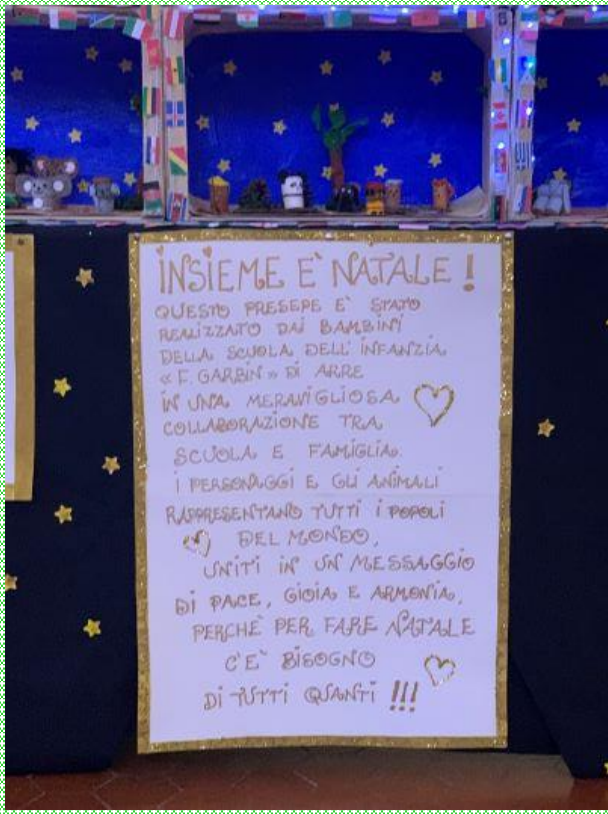 INSIEME E' NATALE!
QUESTO PRESEPE E' STATO
REALIZZATO DAI BAMBINI
DELLA SCUOLA DELL'INFANZIA
«F. GARBIN» DI ARRE
IN UNA MERAVIGLIOSA
COLLABORAZIONE TRA
SCUOLA E FAMIGLIA.
I PERSONAGGI E GLI ANIMALI
RAPPRESENTANO TUTTI I POPOLI
DEL MONDO,
UNITI IN UN MESSAGGIO
DI PACE, GIOIA E ARMONIA,
PERCHÈ PER FARE NATALE
C'E' BISOGNO
DI TUTTI QUANTI !!!